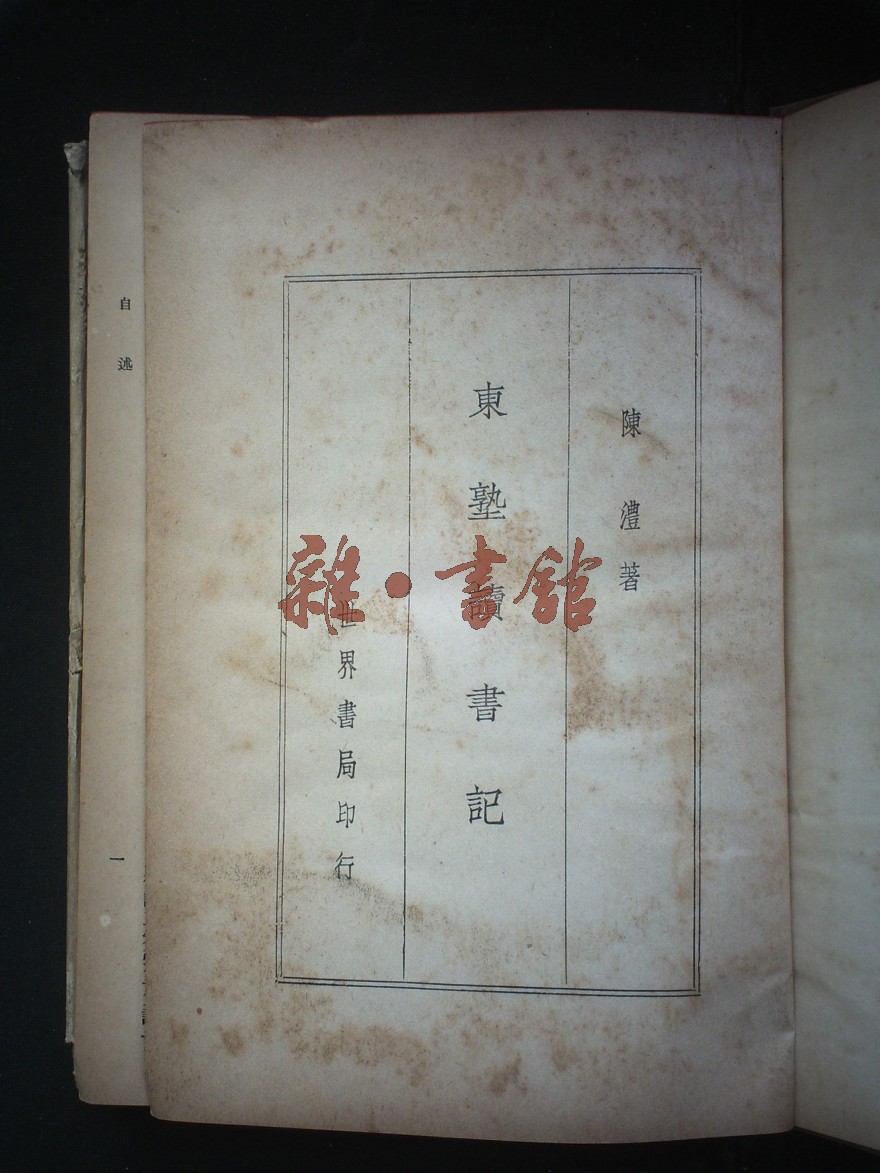 陳澧著
東塾讀書記
世界書局印行
自述
一
雜·書館